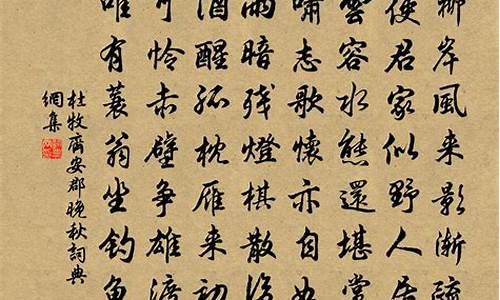 柳岸風来影漸疏
使君家似野人居
雲容水態還堪賞
嘯志歌懷亦自如
雨暗残燈棋散後
酒醒孤枕雁来初
可怜赤壁爭雄渡
唯有蓑翁坐釣魚
杜牧齊安郡晚秋詞典
網集